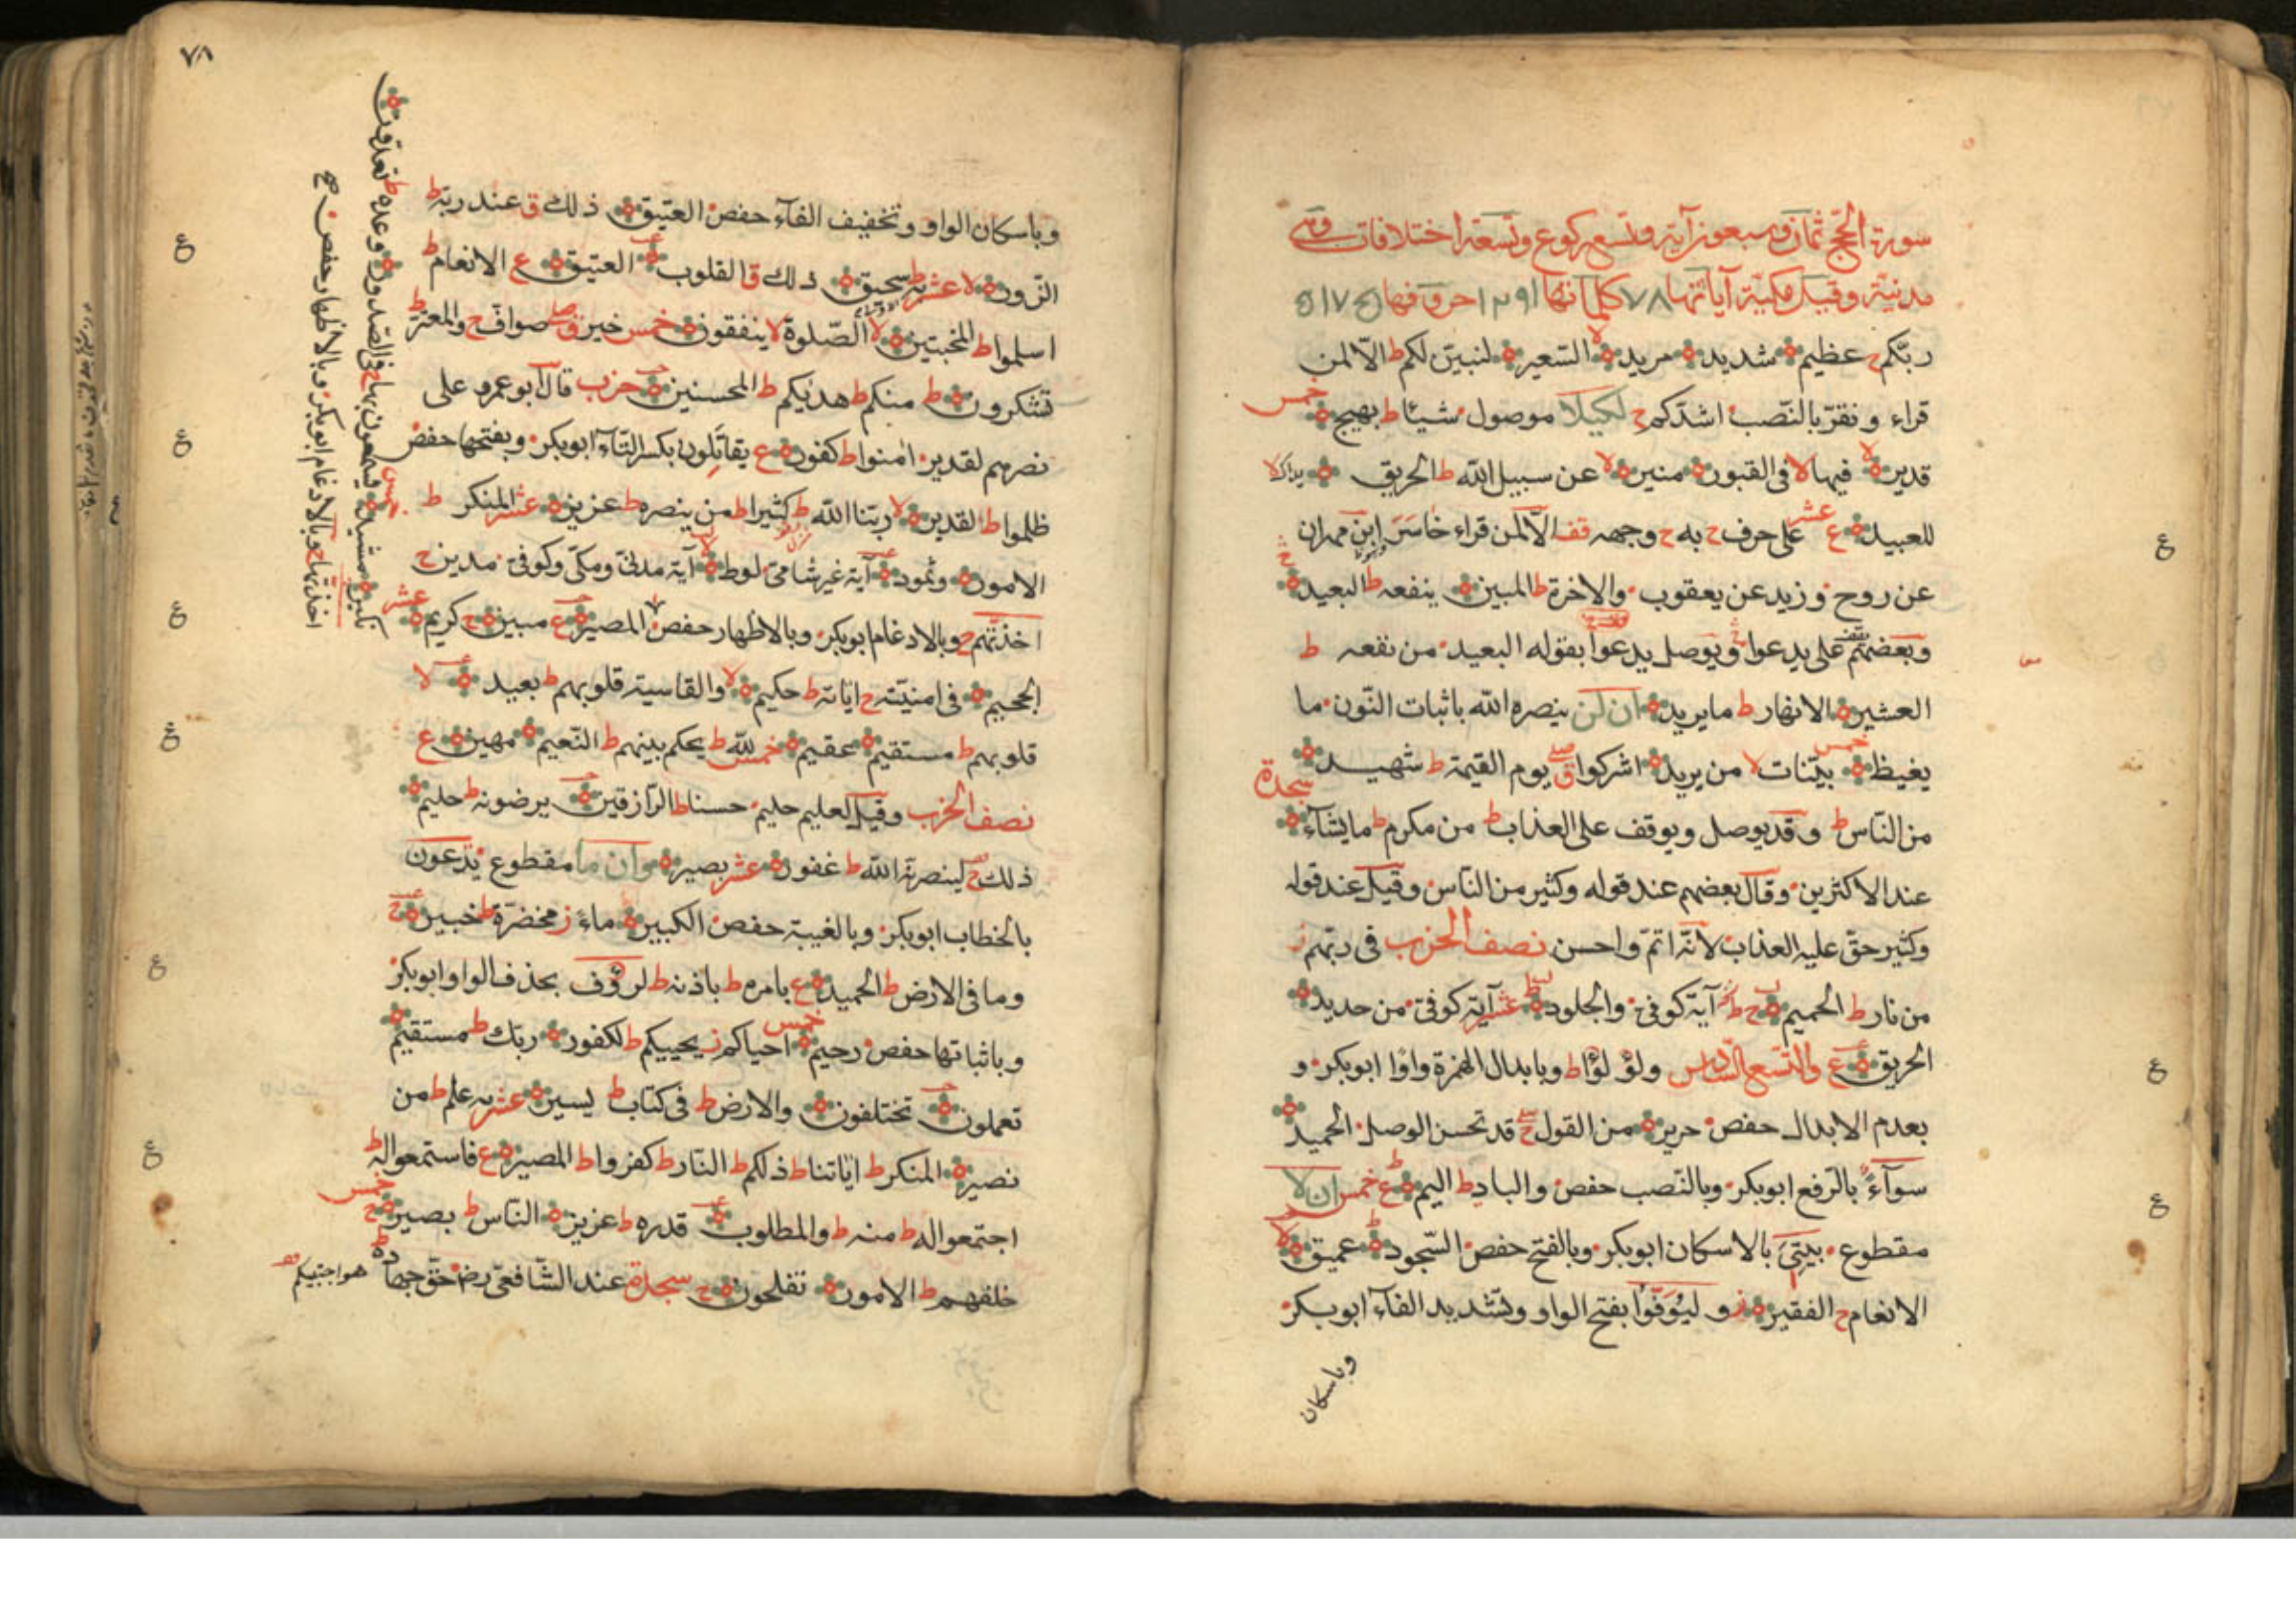 سورة الحجّ ثمان وسبعون آية وتسع ركوع وتسعة اختلافات وهى
مدنيّة وقيل مكيّة آياتها ٧٨ كلماتها ١٢٩١ حروفها ٥١٧٥
ربّكم ح عظيم شديد مريد لا السّعير لنبيّن لكم ط الّا لمن
قراء ونقرّ بالنّصب اشدّكم ح لكيلا موصول شيئا ط بهيج خمس
قدير لا فيها لا فى القبور منير لا عن سبيل الله ط الحريق يداك لا
للعبيد ع عشر على حرف ح به ح وجهه قف الّا لمن قراء خاسر ابن مهران
عن روح وزيد عن يعقوب والاخرة ط المبين ينفعه ط البعيد ج
وبعضهم يقف على يدعوا ويوصل يدعوا بقوله البعيد من نفعه ط
العشير الانهار ط ما يريد ان لن ينصره الله باثبات النّون ما
يغيظ خمس بيّنات لا من يريد اشركوا ق صلى يوم القيمة ط شهيد سجدة
من النّاس ط وقد يوصل ويوقف على العذاب ط من مكرم ط ما يشآء
عند الاكثرين وقال بعضهم عند قوله وكثير من النّاس وقيل عند قوله
وكثير حقّ عليه العذاب لانّه اتمّ واحسن نصف الحزب فى ربّهم ز
من نار ط الحميم ج ط آية كوفىّ والجلود ط عشر آية كوفىّ من حديد
الحريق ع والتّسع السّادس ولؤلؤا ط وبابدال الهمزة واوًا ابوبكر و
بعدم الابدال حفص حرير من القول ج قد تحسن الوصل الحميد
سوآءً بالرّفع ابوبكر وبالنّصب حفص والباد ط اليم ع خمس ان لا
مقطوع بيتى بالاسكان ابوبكر وبالفتح حفص السّجود عميق لا
الانعام ح الفقير ز وليوفّوا بفتح الواو وتشديد الفآء ابوبكر
وباسكان
٧٨
وباسكان الواو وتخفيف الفآء حفص العتيق ذلك ق عند ربّه ط
الزّور لا عشر به ط سحيق ذلك ق القلوب العتيق ع الانعام ط
اسلموا ط المخبتين لا الصّلوة لا ينفقون خمس خير ق صلى صوآفّ ح والمعترّ ط
تشكرون ط منكم ط هديكم ط المحسنين حزب قال ابو عمرو على
نصرهم لقدير امنوا ط كفور ع يقاتلون بكسر التّآء ابوبكر وبفتحها حفص
ظلموا ط لقدير لا ربّنا الله ط كثيرا ط من ينصره ط عزيز عشر المنكر ط
الامور وثمود آية غير شامىّ لوط آية مدنىّ ومكّى وكوفىّ مدين ح
اخذتهم ح وبالادغام ابوبكر وبالاظهار حفص المصير ع مبين ج كريم عشر
الجحيم فى امنيّته ح اياته ط حكيم لا والقاسية قلوبهم ط بعيد لا
قلوبهم ط مستقيم عقيم خمس لله ط يحكم بينهم ط النّعيم مهين ع
نصف الحزب وقيل لعليم حليم حسنا ط الرّازقين يرضونه ط حليم
ذلك ج لينصرنّه الله ط غفور عشر بصير وان ما مقطوع يدعون
بالخطاب ابوبكر وبالغيبة حفص الكبير ماءً ز مخضرّة ط خبير ج
وما فى الارض ط الحميد ع بامره ط باذنه ط لرؤف بحذف الواو ابوبكر
وباثباتها حفص رحيم خمس احياكم ز يحييكم ط لكفور ربّك ط مستقيم
تعملون تختلفون والارض ط فى كتاب ط يسير عشر به علم ط من
نصير المنكر ط اياتنا ط ذلكم ط النّار ط كفروا ط المصير ع فاستمعوا له ط
اجتمعوا له ط منه ط والمطلوب قدره ط عزيز النّاس ط بصير ج خمس
خلفهم ط الامور تفلحون ج سجدة عند الشّافعى رض حقّ جهاده ط هو اجتبيكم
نكير مشيد خمس يسمعون بها ح فى الصّدور وعده ط تعدّون
اخذتها ح وبالادغام ابوبكر وبالاظهار حفص صح